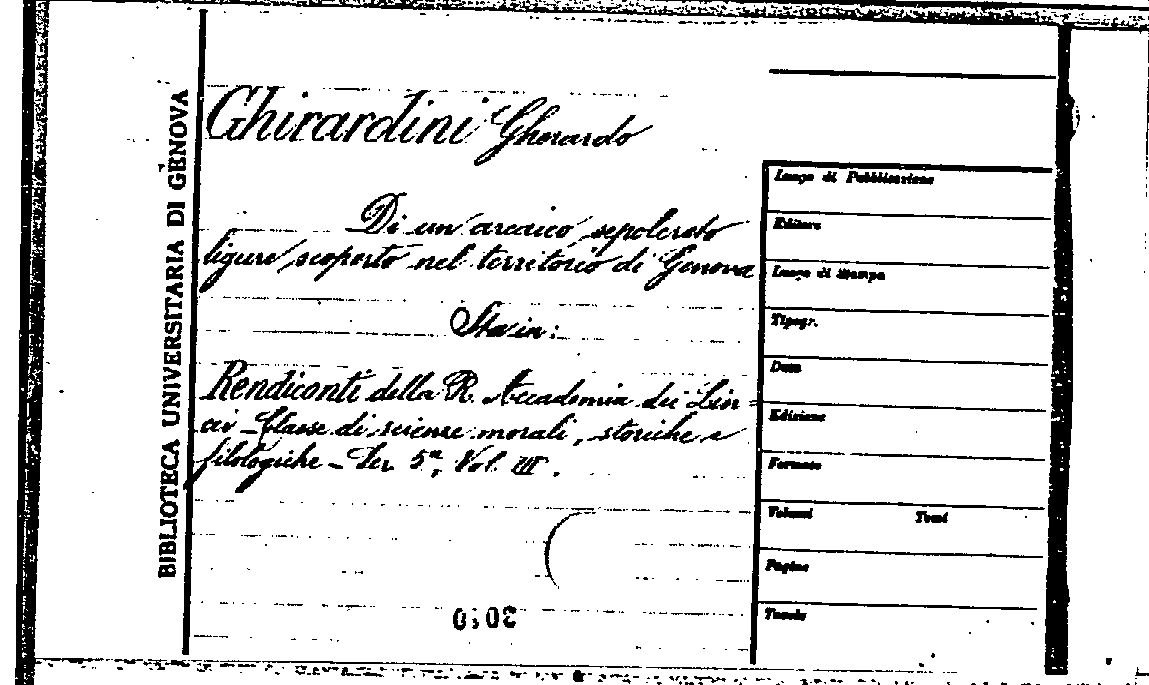 BIBLIOTECA UNIVERSITARIA DI GENOVA
Ghirardini Gherardo
Di un arcaico sepolcreto
ligure scoperto nel territorio di Genova
Sta in:
Rendiconti della R. Accademia dei Lin=
cei - Classe di scienze morali, storiche e
filologiche - Ser. 5ª, Vol. III.
Luogo di Pubblicazione
Editore
Luogo di stampa
Tipogr.
Data
Edizione
Formato
Volumi Tomi
Pagine
Tavole